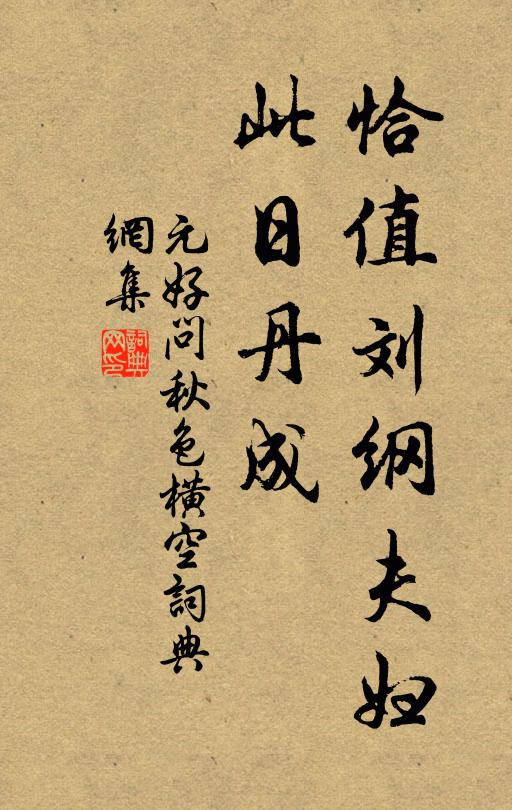 恰值刘纲夫妇
此日丹成
元好问秋色橫空詞典
網集
詞典
网印